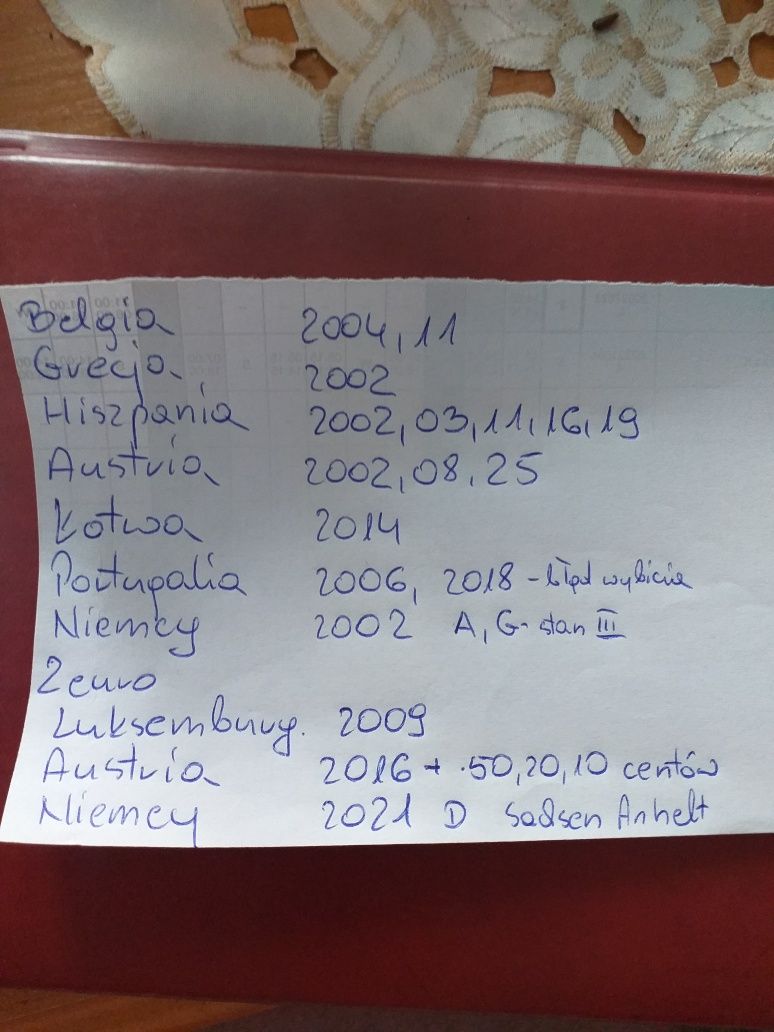 Belgia 2004, 11
Grecja 2002
Hiszpania 2002, 03, 11, 16, 19
Austria 2002, 08, 25
Łotwa 2014
Portugalia 2006, 2018 - błąd wybicia
Niemcy 2002 A, G - stan III
2 euro
Luksemburg. 2009
Austria 2016 + 50, 20, 10 centów
Niemcy 2021 D Sachsen Anhelt